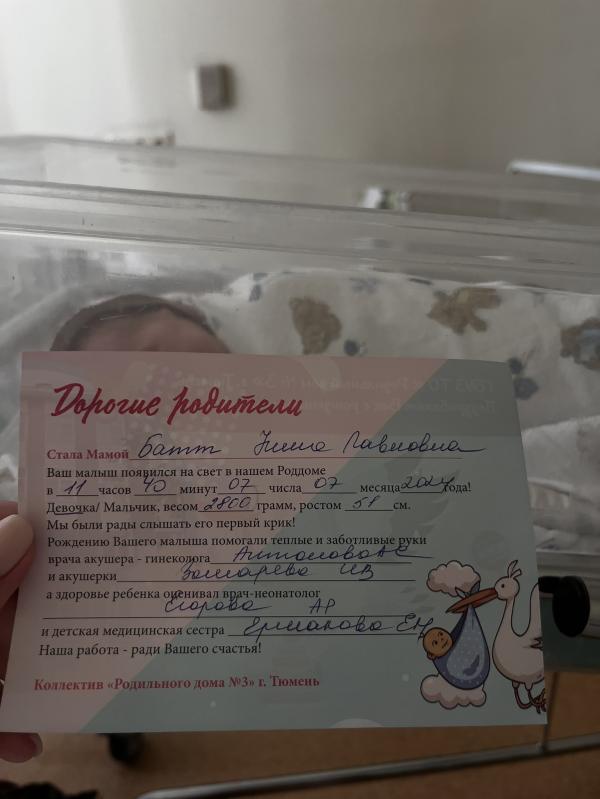 Дорогие родители
Стала Мамой Батт Нина Павловна
Ваш малыш появился на свет в нашем Роддоме
в 11 часов 40 минут 07 числа 07 месяца 2024 года!
Девочка/ Мальчик, весом 2800 грамм, ростом 51 см.
Мы были рады слышать его первый крик!
Рождению Вашего малыша помогали теплые и заботливые руки
врача акушера - гинеколога
и акушерки
а здоровье ребенка оценивал врач-неонатолог
Егорова АР
и детская медицинская сестра Ермакова ЕН
Наша работа - ради Вашего счастья!
Коллектив «Родильного дома №3» г. Тюмень